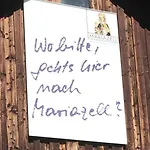 Wo bitte,
gehts hier
nach
Mariazell?